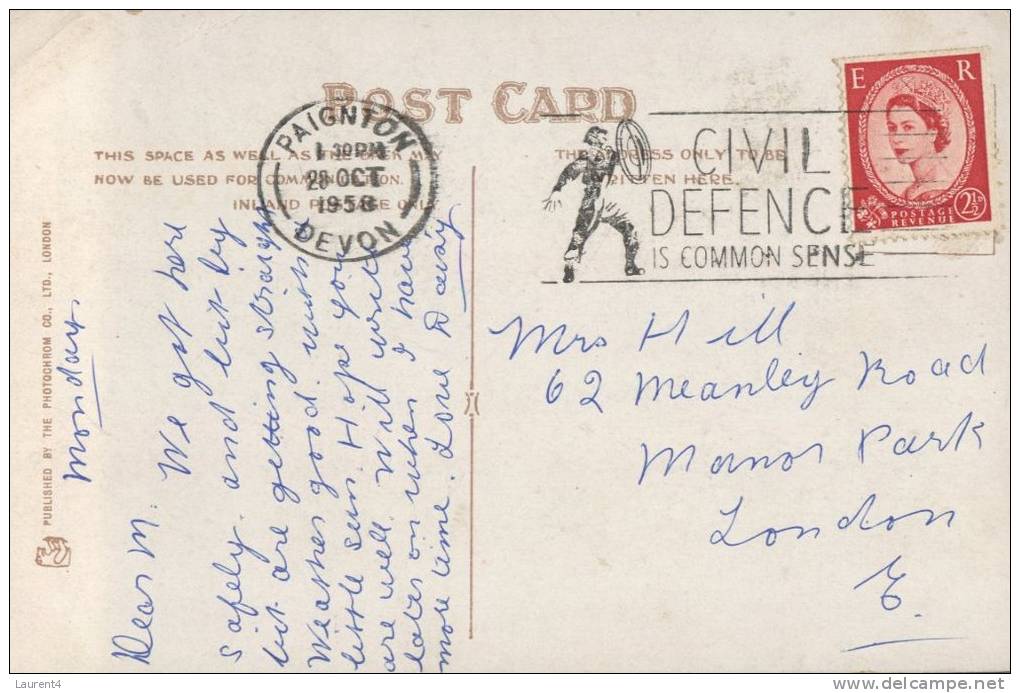 POST CARD
THIS SPACE AS WELL AS THE BACK MAY
NOW BE USED FOR COMMUNICATION.
INLAND POSTAGE ONLY
THE ADDRESS ONLY TO BE
WRITTEN HERE.
PAIGNTON
1 30 PM
28 OCT
1958
DEVON
CIVIL
DEFENCE
IS COMMON SENSE
E R
POSTAGE
REVENUE
2½D
PUBLISHED BY THE PHOTOCHROM CO., LTD., LONDON
Monday.
Dear M. We got here
safely. and bit by
bit are getting straight
Weather good. with
little sun. Hope you
are well. Will write
later on when I have
more time. Love Daisy
Mrs Hill
62 Meanley Road
Manor Park
London
E.
Laurent4
delcampe.net